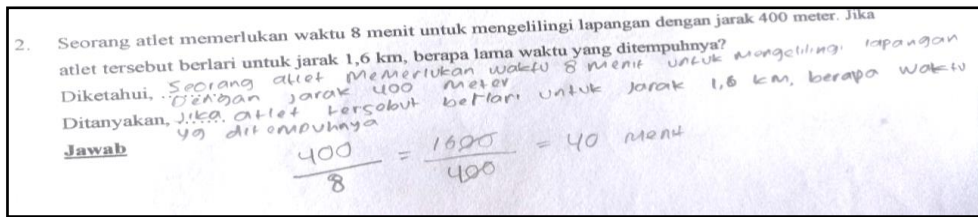 2. Seorang atlet memerlukan waktu 8 menit untuk mengelilingi lapangan dengan jarak 400 meter. Jika
atlet tersebut berlari untuk jarak 1,6 km, berapa lama waktu yang ditempuhnya?
Diketahui, Seorang atlet memerlukan waktu 8 menit untuk mengelilingi lapangan
Dengan jarak 400 meter
Ditanyakan, Jika atlet tersebut berlari untuk jarak 1,6 km, berapa waktu
yg ditempuhnya
Jawab
400/8 = 1600/400 = 40 menit